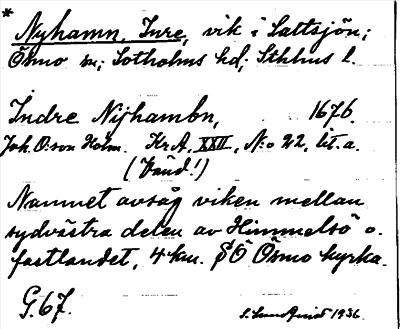 *
Nyhamn, Inre, vik i Saltsjön;
Ösmo sn; Sotholms hd; Sthlms l.
Indre Nijhambn, 1676.
Joh. O:son Holm. Kr A, XXII, N:o 22, lit. a.
("Vänd!)
Namnet avsåg viken mellan
sydvästra delen av Himmelsö o.
fastlandet, 4 km. SÖ Ösmo kyrka.
G. 67.
1936.